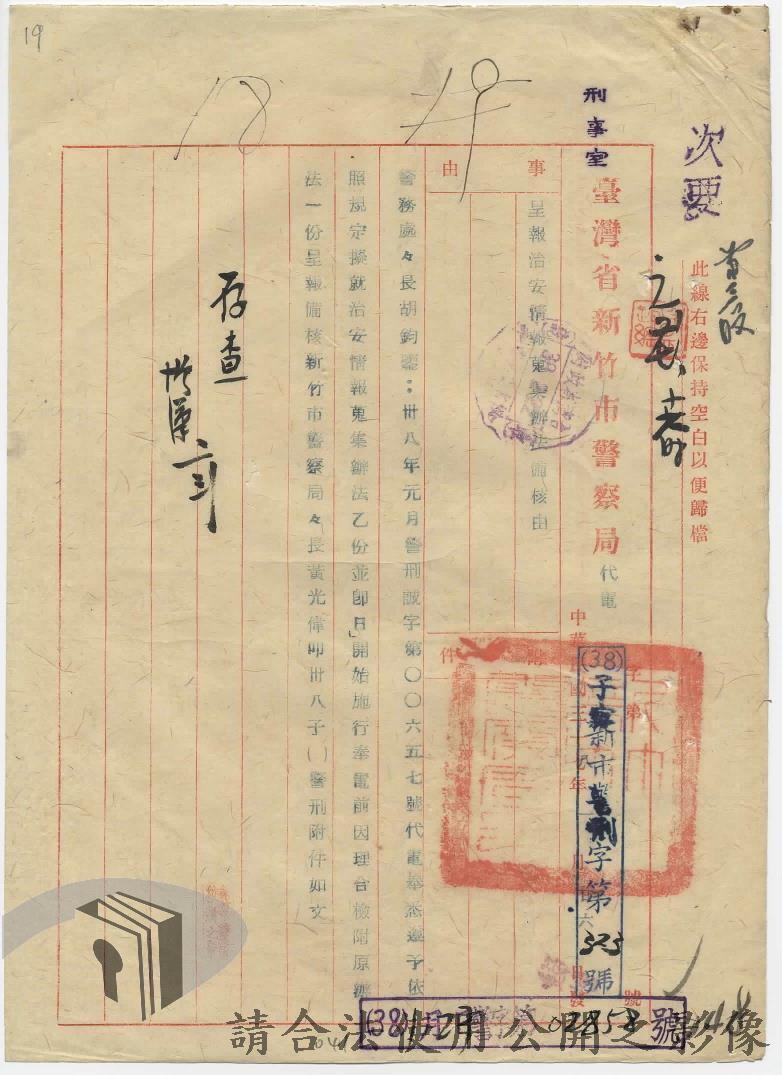 19
次要
此線右邊保持空白以便歸檔
刑事室
臺灣省新竹市警察局代電
(38)子 新市警刑字第 號
事由
呈報治安情報蒐集辦法備核由
附件
警務處々長胡鈞鑒:卅八年元月警刑誠字第〇〇六五七號代電奉悉遵予依
照規定擬就治安情報蒐集辦法乙份並即日開始施行奉電前因理合檢附原辦
法一份呈報備核新竹市警察局々長黃光偉叩卅八子( )警刑附件如文
存查
請合法使用公開之影像